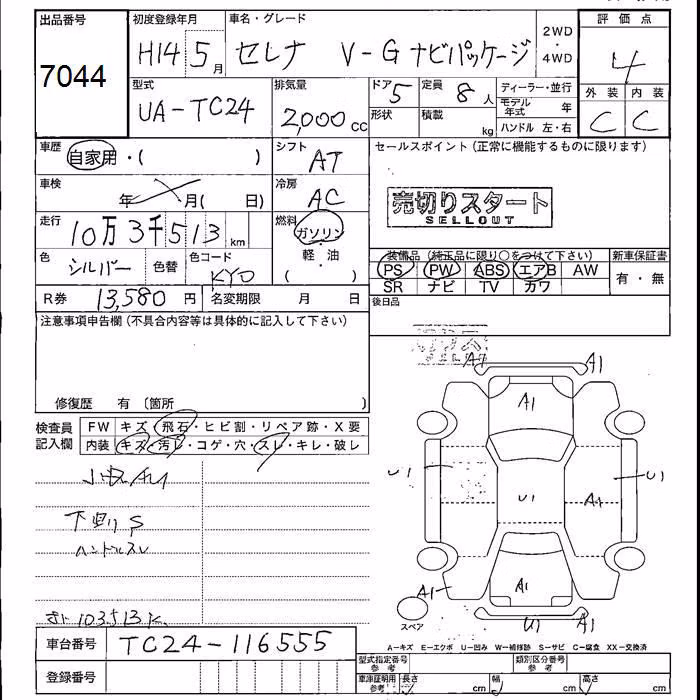 出品番号
7044
初度登録年月
H14 5月
車名・グレード
セレナ V-G ナビパッケージ
2WD
・
4WD
評価点
4
外装 内装
C C
型式
UA-TC24
排気量
2,000cc
ドア
5
定員
8人
形状
積載
kg
ディーラー・並行
モデル年式 年
ハンドル 左・右
車歴
自家用・( )
シフト
AT
車検
年 月( 日)
冷房
AC
走行
10万3千513km
燃料
ガソリン
軽・油
( )
色
シルバー
色替
色コード
KY0
R券 13,580円
名変期限 月 日
セールスポイント(正常に機能するものに限ります)
売切りスタート
SELLOUT
装備品(純正品に限り○をつけて下さい)
PS PW ABS エアB AW
SR ナビ TV カワ
新車保証書
有・無
後日品
注意事項申告欄(不具合内容等は具体的に記入して下さい)
修復歴 有 〔箇所 〕
検査員
記入欄
FW キズ・飛石・ヒビ割・リペア跡・X要
内装 キズ・汚レ・コゲ・穴・スレ・キレ・破レ
小キズAU
下廻りS
ハンドルスレ
103513K
A1
A1
A1
U1
U1
U1
A1
A1
A1
U1
A1
スペア
A-キズ E-エクボ U-凹み W-補修跡 S-サビ C-腐食 XX-交換済
車台番号
TC24-116555
登録番号
型式指定番号
参考
類別区分番号
参考
車庫証明用
参考
長さ cm
幅 cm
高さ cm